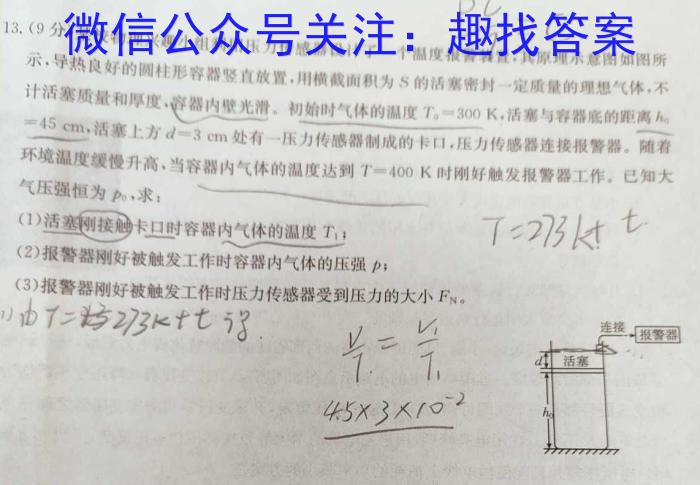 微信公众号关注：趣找答案
13.(9分)
示,导热良好的圆柱形容器竖直放置,用横截面积为 S 的活塞密封一定质量的理想气体,不
计活塞质量和厚度,容器内壁光滑。初始时气体的温度 T₀=300 K,活塞与容器底的距离 h₀
=45 cm,活塞上方 d=3 cm 处有一压力传感器制成的卡口,压力传感器连接报警器。随着
环境温度缓慢升高,当容器内气体的温度达到 T=400 K 时刚好触发报警器工作。已知大
气压强恒为 p₀,求:
(1)活塞刚接触卡口时容器内气体的温度 T₁;
T=273K+t
(2)报警器刚好被触发工作时容器内气体的压强 p;
(3)报警器刚好被触发工作时压力传感器受到压力的大小 Fₙ。
由T=273K+t 得
V/T = V₁/T₁
45×3×10⁻²
连接
报警器
d
活塞
h₀